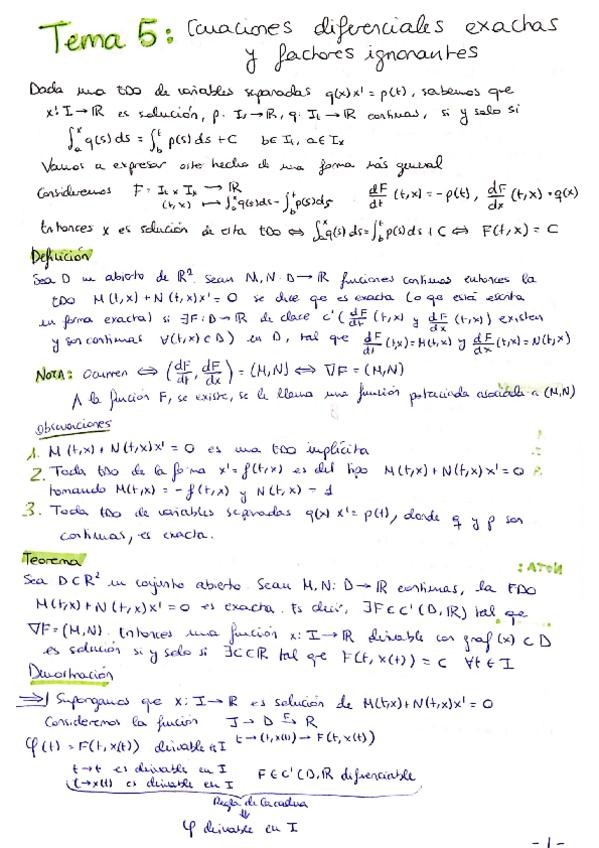 Tema 5: Ecuaciones diferenciales exactas
y factores ignorantes
Dada una EDO de variables separadas q(x)x' = p(t), sabemos que
x: I → ℝ es solución, p: I₁ → ℝ, q: I₂ → ℝ continuas, si y solo si
∫ₐˣ q(s) ds = ∫_b^t p(s) ds + C b∈ I₁, a∈ Iₓ
Vamos a expresar este hecho de una forma más general
Consideremos F: I₁ x Iₓ → ℝ
(t, x) ↦ ∫ₐˣ q(s)ds - ∫_b^t p(s)ds dF/dt (t,x) = -p(t), dF/dx (t,x) = q(x)
Entonces x es solución de esta EDO ⇔ ∫ₐˣ q(s)ds = ∫_b^t p(s)ds + C ⇔ F(t,x) = C
Definición
Sea D un abierto de ℝ². Sean M, N: D → ℝ funciones continuas entonces la
EDO M(t,x) + N(t,x)x' = 0 se dice que es exacta (o que está escrita
en forma exacta) si ∃F: D → ℝ de clase C¹ (dF/dt (t,x) y dF/dx (t,x) existen
y son continuas ∀(t,x) ∈ D) en D, tal que dF/dt (t,x) = M(t,x) y dF/dx (t,x) = N(t,x)
NOTA: Ocurren ⇔ (dF/dt, dF/dx) = (M,N) ⇔ ∇F = (M,N)
A la función F, se existe, se le llama una función potencial asociada a (M,N)
Observaciones
1. M(t,x) + N(t,x)x' = 0 es una EDO implícita
2. Toda EDO de la forma x' = f(t,x) es del tipo M(t,x) + N(t,x)x' = 0
tomando M(t,x) = -f(t,x) y N(t,x) = 1
3. Toda EDO de variables separadas q(x) x' = p(t), donde q y p son
continuas, es exacta.
Teorema
Sea D ⊂ ℝ² un conjunto abierto. Sean M, N: D → ℝ continuas, la EDO
M(t,x) + N(t,x)x' = 0 es exacta. Es decir, ∃F ∈ C¹(D,ℝ) tal que
∇F = (M,N). Entonces una función x: I → ℝ derivable con graf(x) ⊂ D
es solución si y solo si ∃C∈ℝ tal que F(t, x(t)) = C ∀t ∈ I
Demostración
⇒| Supongamos que x: I → ℝ es solución de M(t,x) + N(t,x)x' = 0
Consideremos la función I → D →F ℝ
φ(t) = F(t, x(t)) derivable en I t → (t, x(t)) → F(t, x(t))
t → t es derivable en I
t → x(t) es derivable en I F ∈ C¹(D,ℝ) diferenciable
Regla de la cadena
⇓
φ derivable en I
-1-